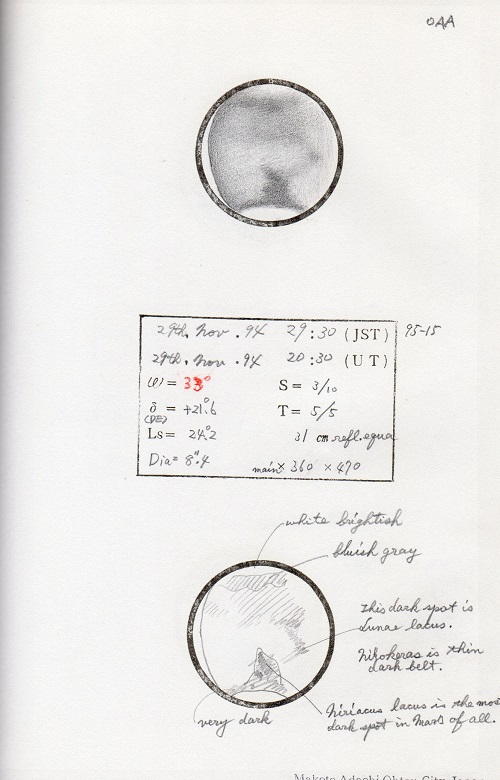 OAA
29th, Nov. 94 29:30 (JST) 95-15
29th, Nov. 94 20:30 (UT)
ω = 33° S = 3/10
δ = +21°.6 T = 5/5
(DE)
Ls = 24°.2 31 cm refl. equa
Dia = 8".4 main × 360 × 470
white brightish
bluish gray
this dark spot is
Lunae lacus.
Nilokeras is thin
dark belt.
very dark
Niriacus lacus is the most
dark spot in Mars of all.
Makoto Adachi Ohtsu City Japan